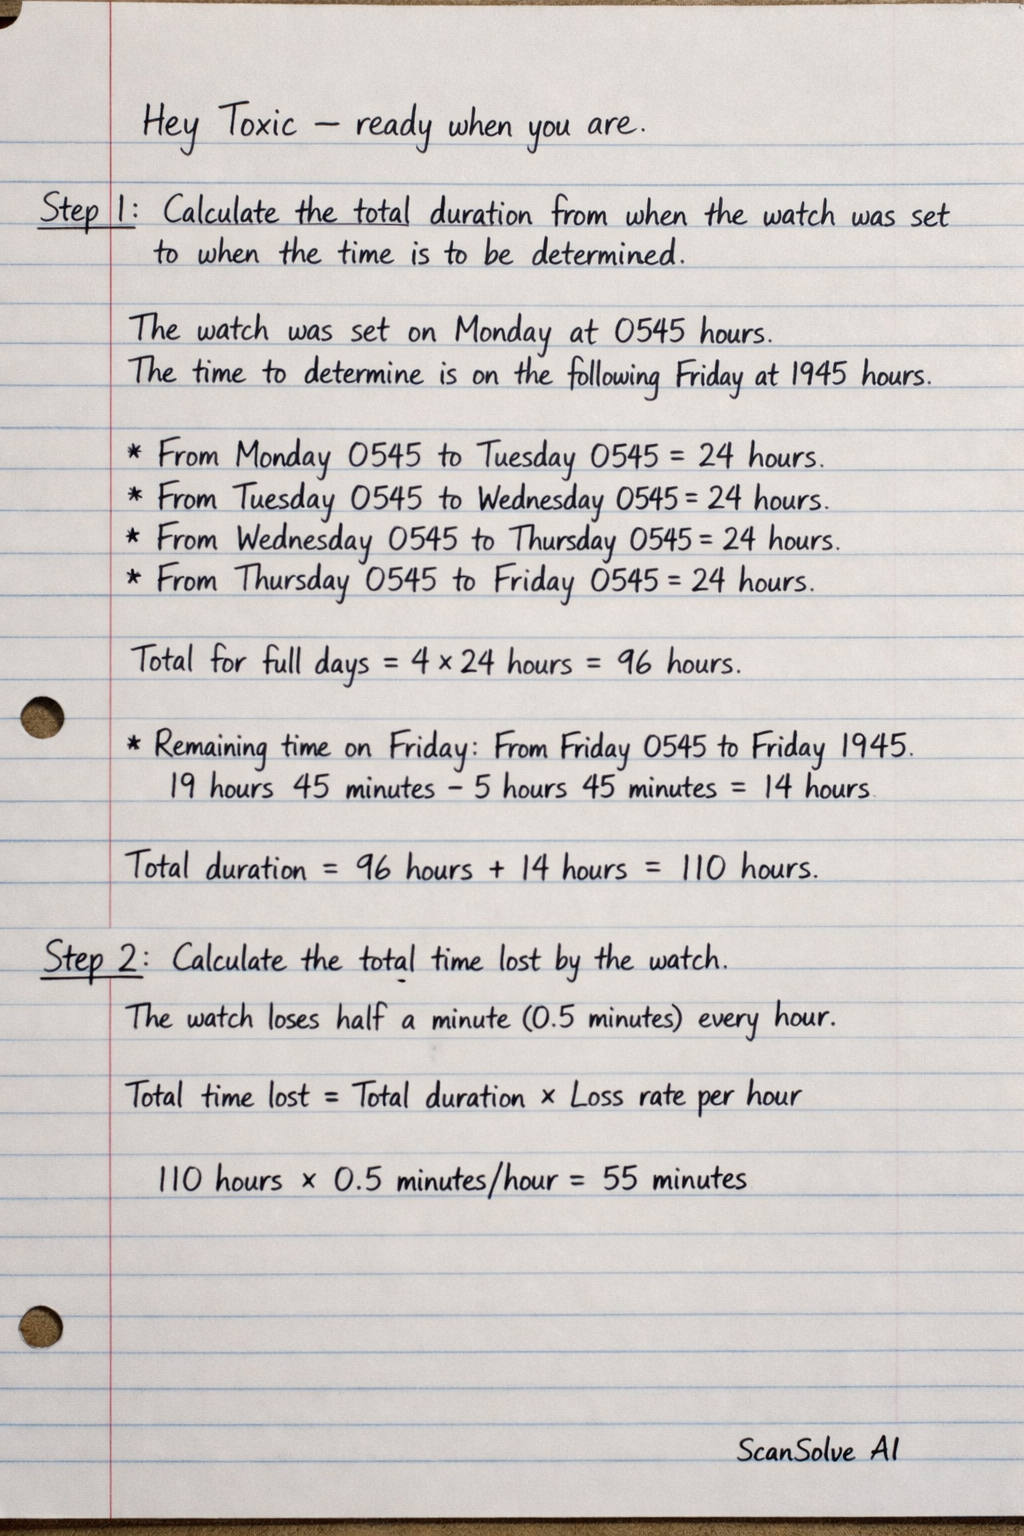 Hey Toxic — ready when you are.
Step 1: Calculate the total duration from when the watch was set
to when the time is to be determined.
The watch was set on Monday at 0545 hours.
The time to determine is on the following Friday at 1945 hours.
* From Monday 0545 to Tuesday 0545 = 24 hours.
* From Tuesday 0545 to Wednesday 0545 = 24 hours.
* From Wednesday 0545 to Thursday 0545 = 24 hours.
* From Thursday 0545 to Friday 0545 = 24 hours.
Total for full days = 4 × 24 hours = 96 hours.
* Remaining time on Friday: From Friday 0545 to Friday 1945.
19 hours 45 minutes – 5 hours 45 minutes = 14 hours
Total duration = 96 hours + 14 hours = 110 hours.
Step 2: Calculate the total time lost by the watch.
The watch loses half a minute (0.5 minutes) every hour.
Total time lost = Total duration × Loss rate per hour
110 hours × 0.5 minutes/hour = 55 minutes
ScanSolve AI